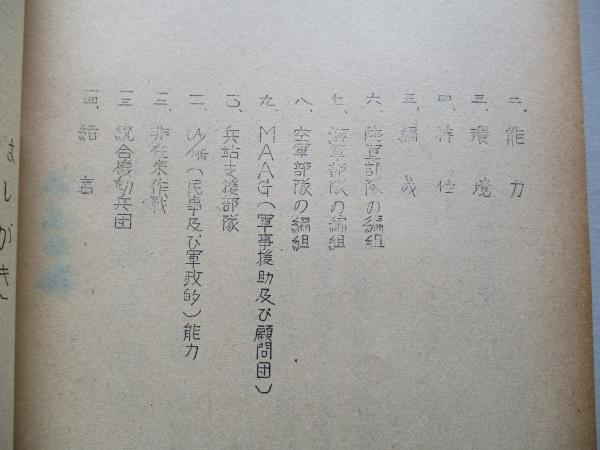 二、能力
三、環境
四、特性
五、編成
六、陸軍部隊の編組
七、海軍部隊の編組
八、空軍部隊の編組
九、MAAG(軍事援助及び顧問団)
一〇、兵站支援部隊
一一、CA/MG(民事及び軍政的)能力
一二、非在来作戦
一三、統合機動兵団
一四、結言
ましがき